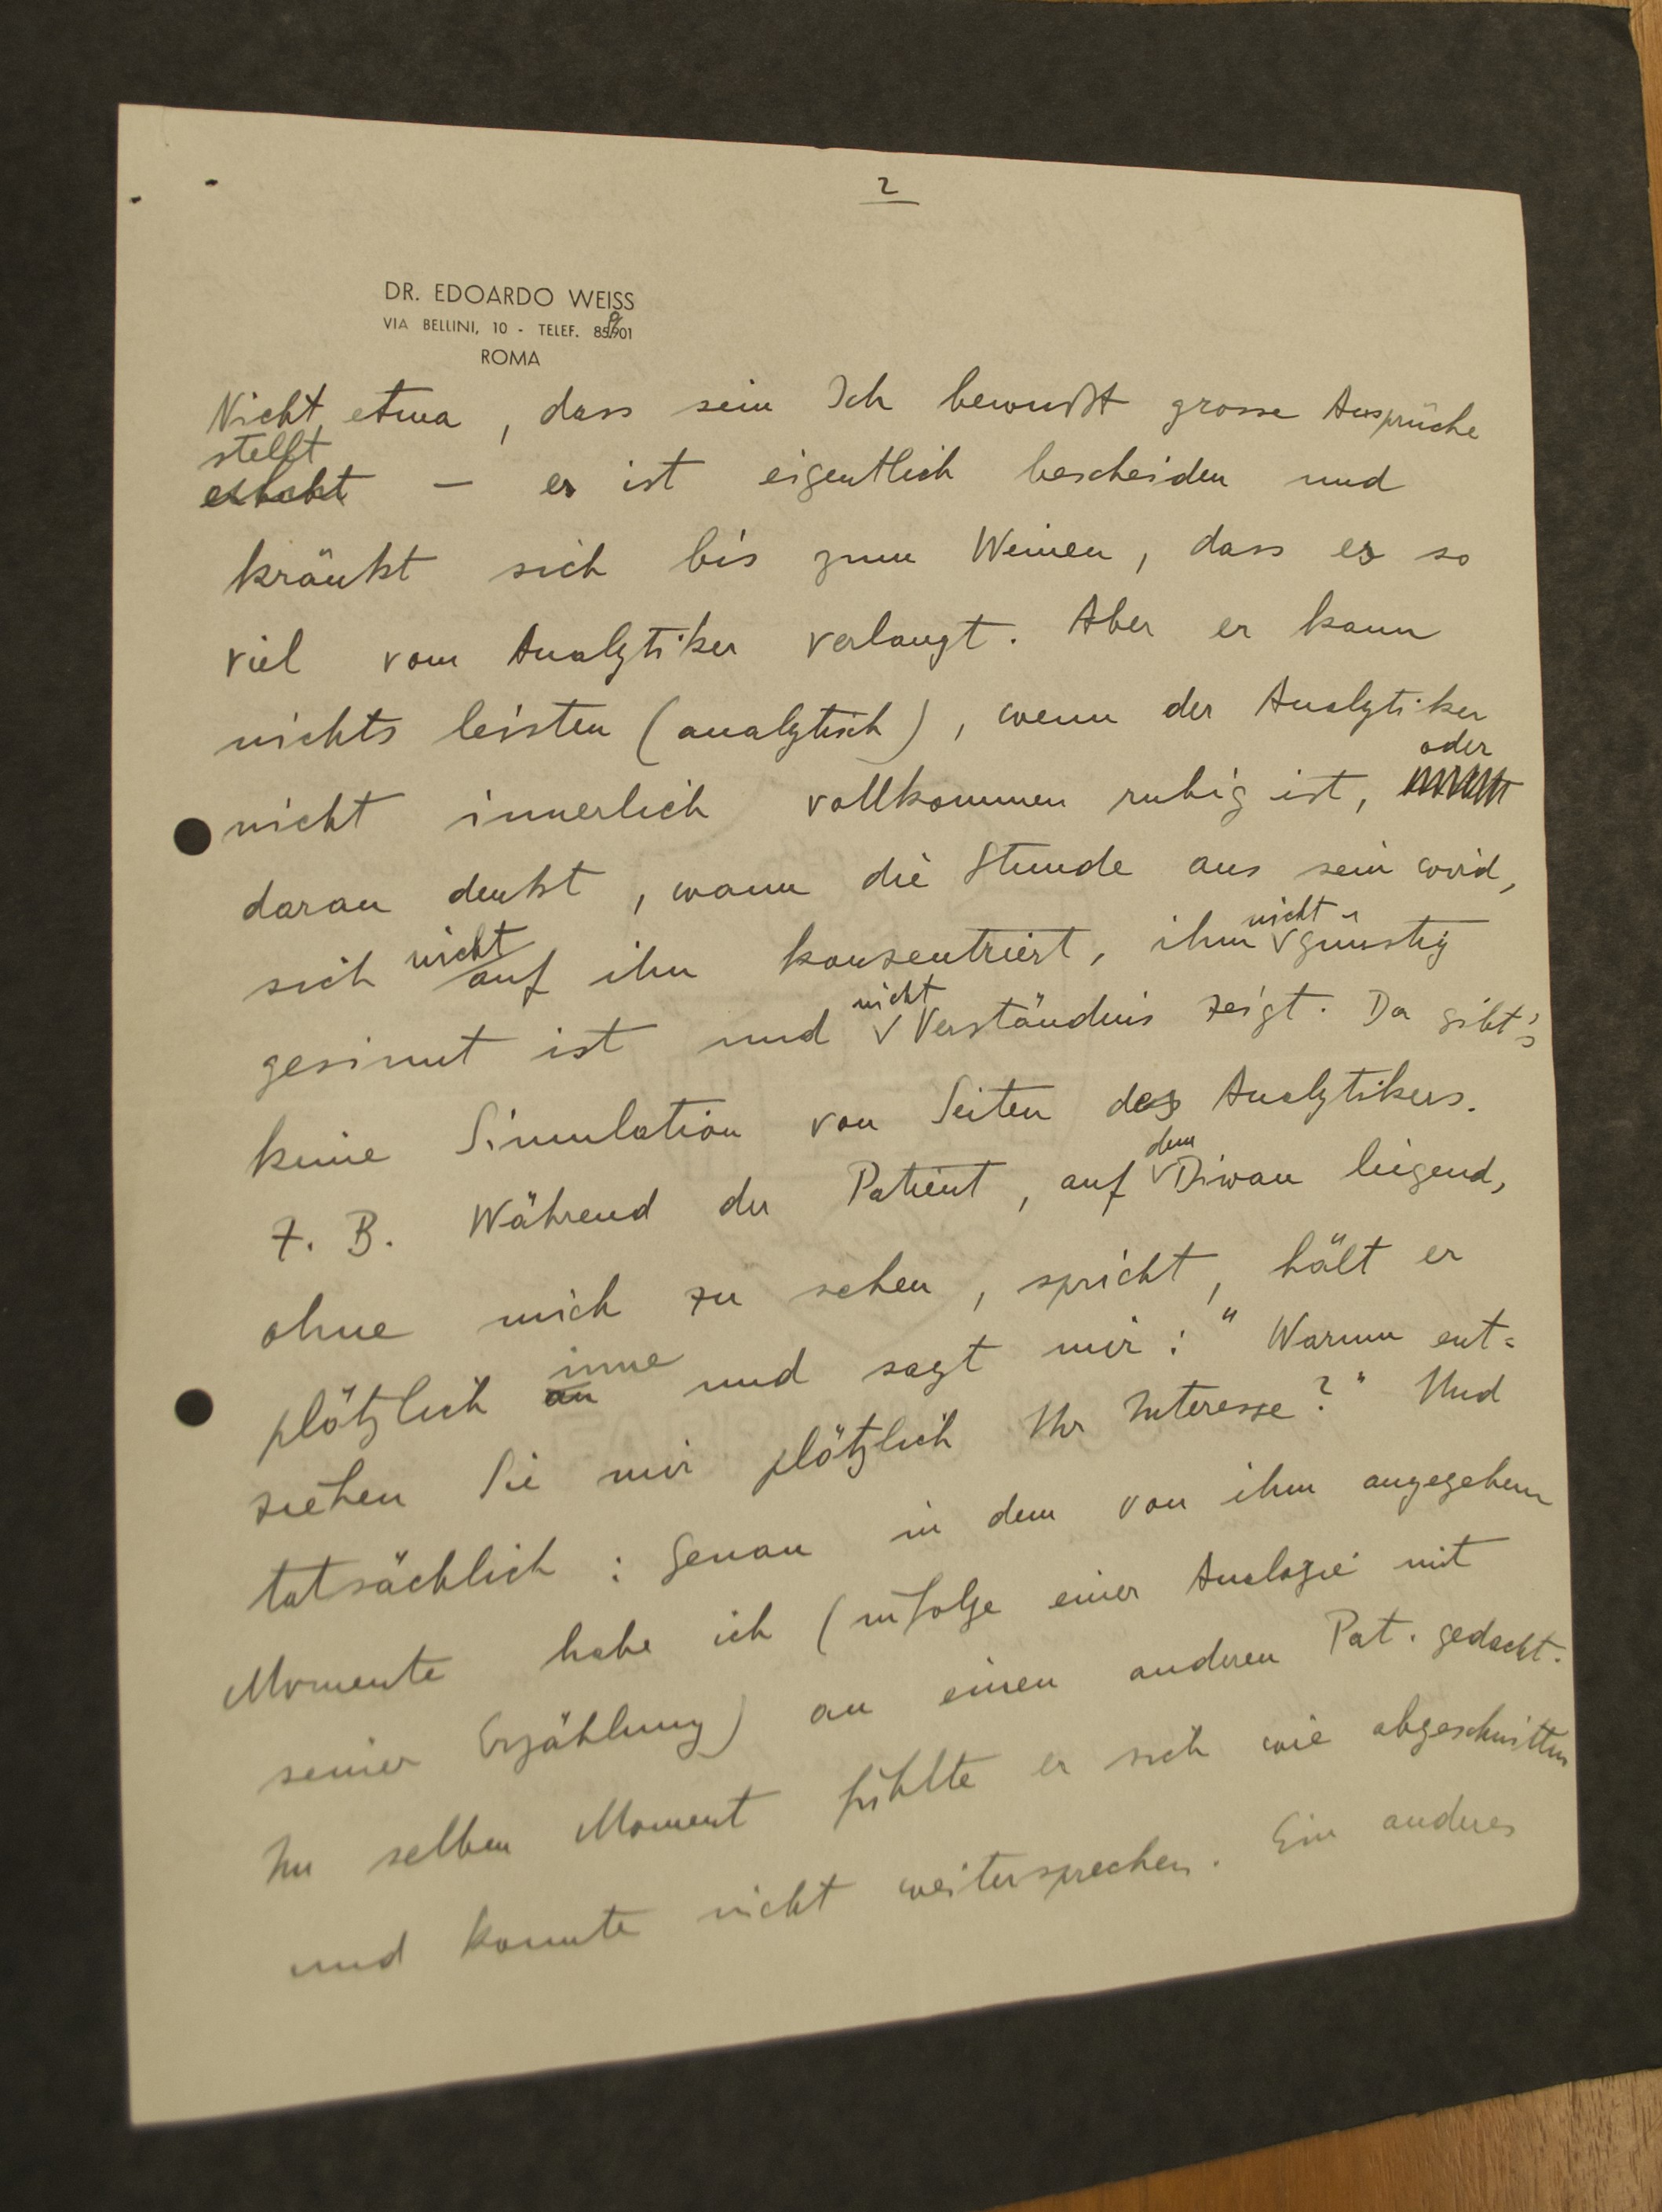 2
DR. EDOARDO WEISS
VIA BELLINI, 10 - TELEF. 859901
ROMA
Nicht etwa, dass sein Ich bewußt grosse Ansprüche
stellt
erhebt — er ist eigentlich bescheiden und
kränkt sich bis zum Weinen, dass er so
viel vom Analytiker verlangt. Aber er kann
nichts leisten (analytisch), wenn der Analytiker
oder
nicht innerlich vollkommen ruhig ist,
daran denkt, wann die Stunde aus sein wird,
nicht nicht
sich auf ihn konzentriert, ihm günstig
nicht
gesinnt ist und Verständnis zeigt. Da gibt's
keine Simulation von Seiten des Analytikers.
dem
Z. B. Während der Patient, auf Diwan liegend,
ohne mich zu sehen, spricht, hält er
inne
plötzlich an und sagt mir: "Warum ent=
ziehen Sie mir plötzlich Ihr Interesse?" Und
tatsächlich: genau in dem von ihm angegebenen
Momente habe ich (infolge einer Analogie mit
seiner Erzählung) an einen anderen Pat. gedacht.
Im selben Moment fühlte er sich wie abgeschnitten
und konnte nicht weitersprechen. Ein anderes